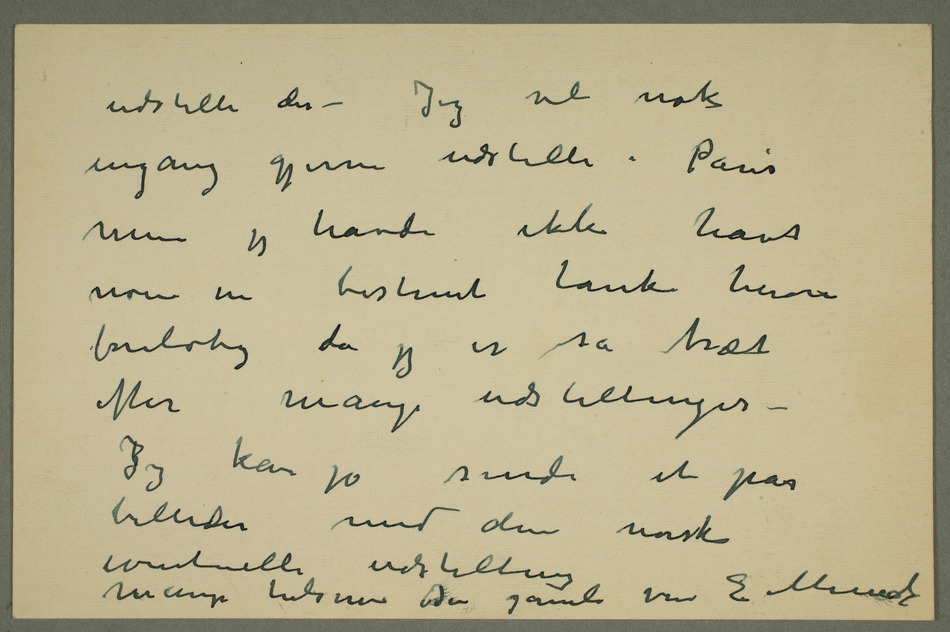 udstille der – Jeg vil nok
engang gjerne udstille i Paris
men jeg havde ikke havt
noen en bestemt tanke herom
foreløbig da jeg er så træt
efter mange udstillinger –
Jeg kan jo sende et par
billeder med den norske
eventuelle udstilling
Mange hilsener Din gamle ven E Munch